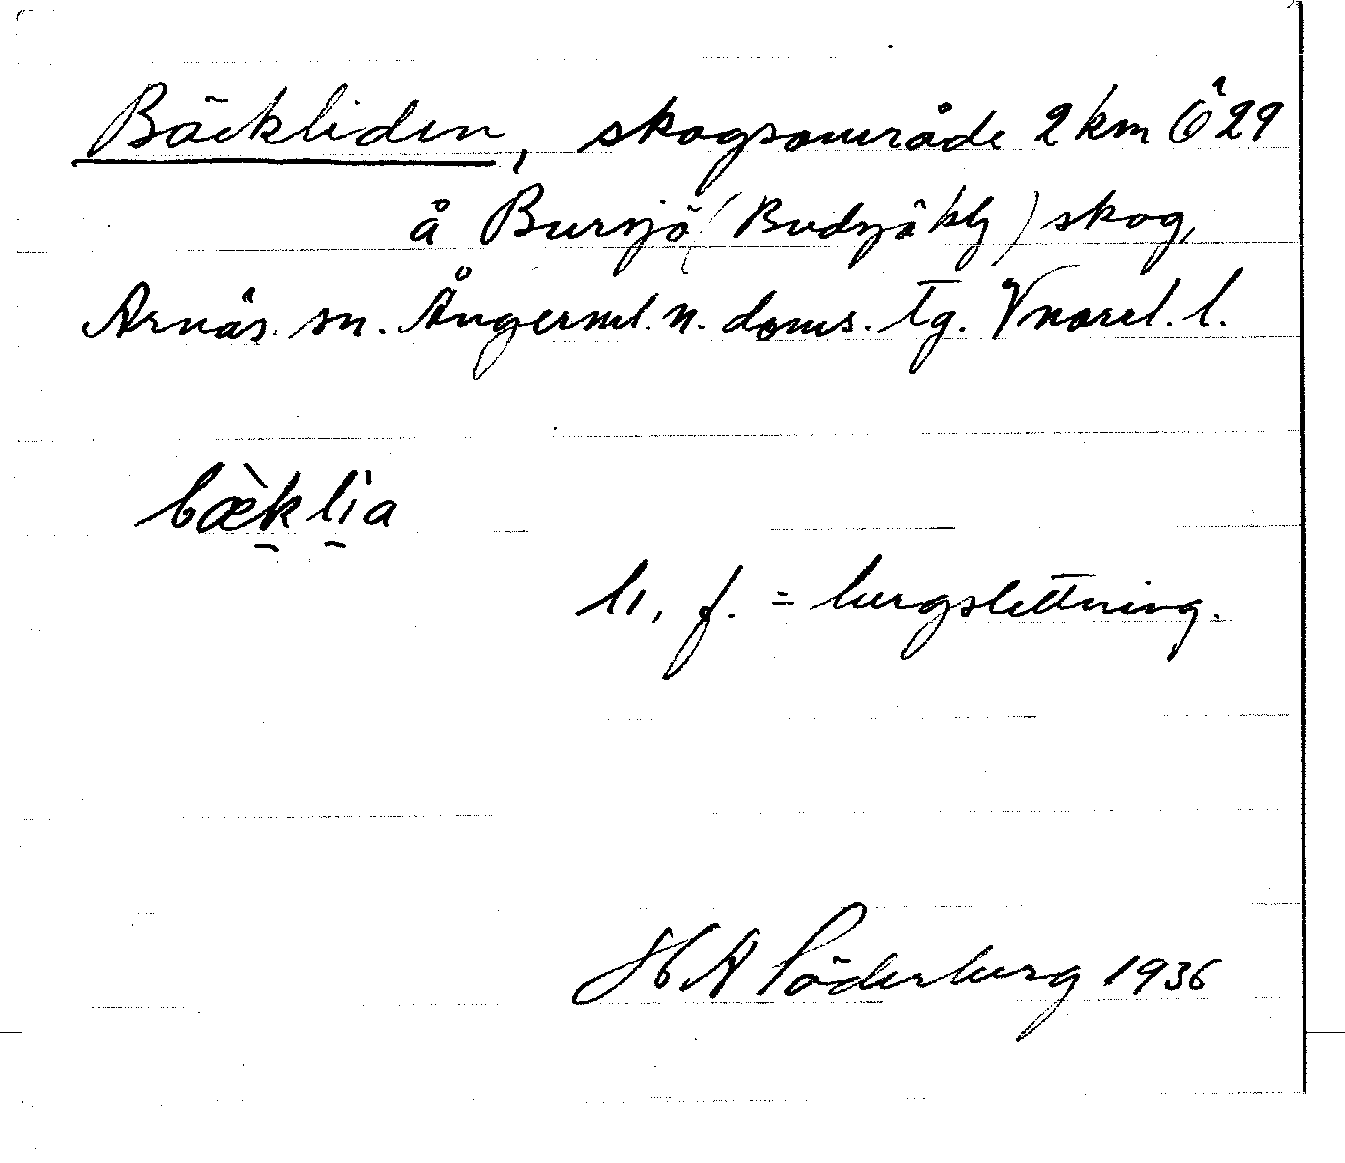 Bäckliden, skogsområde 2 km Ö 29
å Bursjö (Budsjö kly) skog,
Arnäs. sn. Ångerml. n. doms. tg. Vnorrl. l.
bæ̀klìa
li, f. = bergslettning.
H A Söderberg 1936